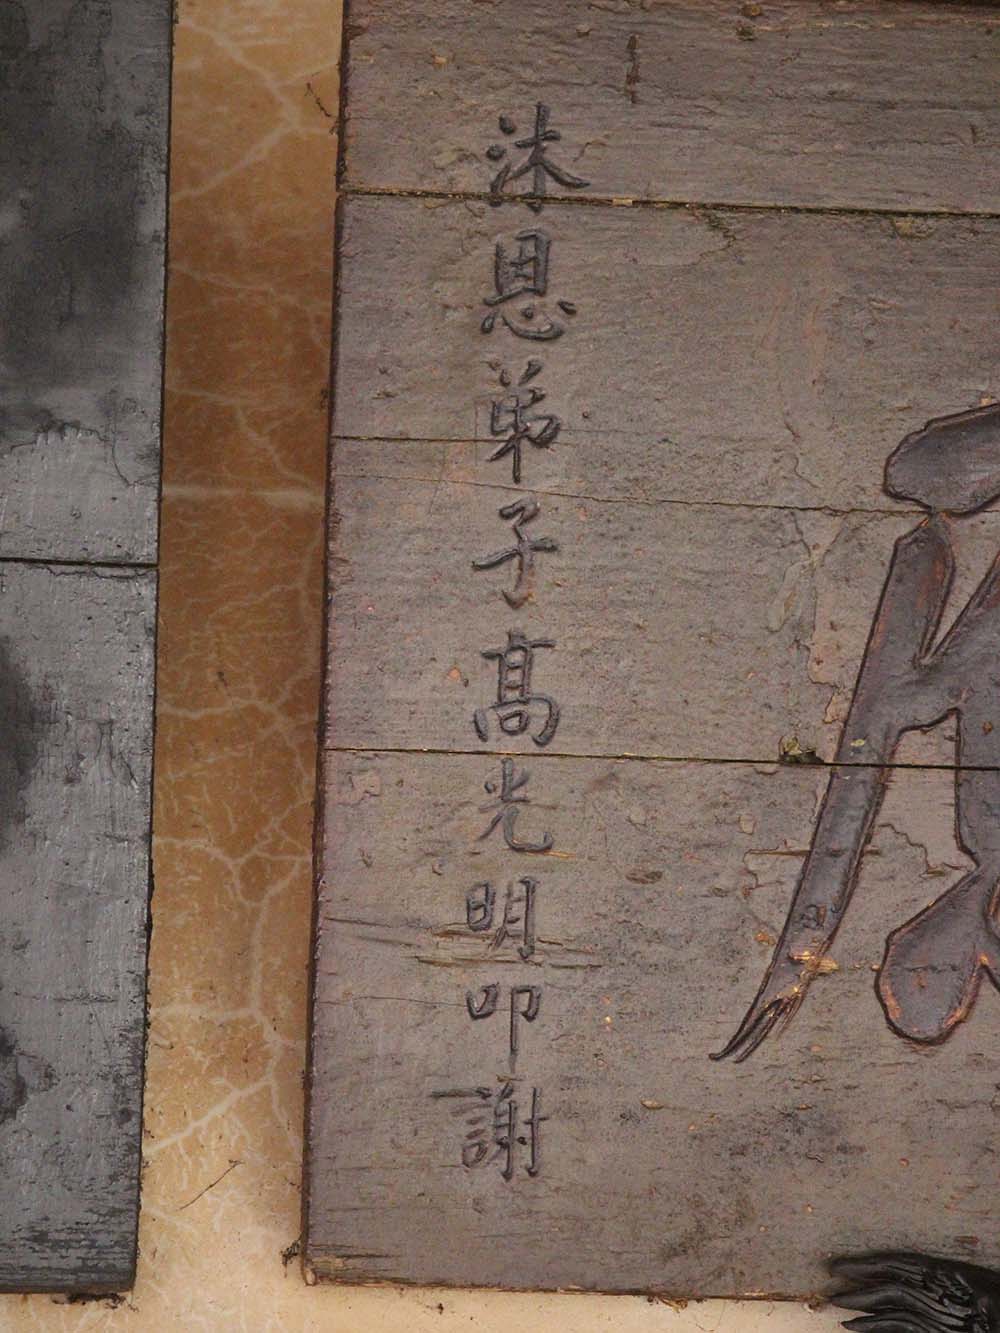 沐恩弟子髙光明叩謝